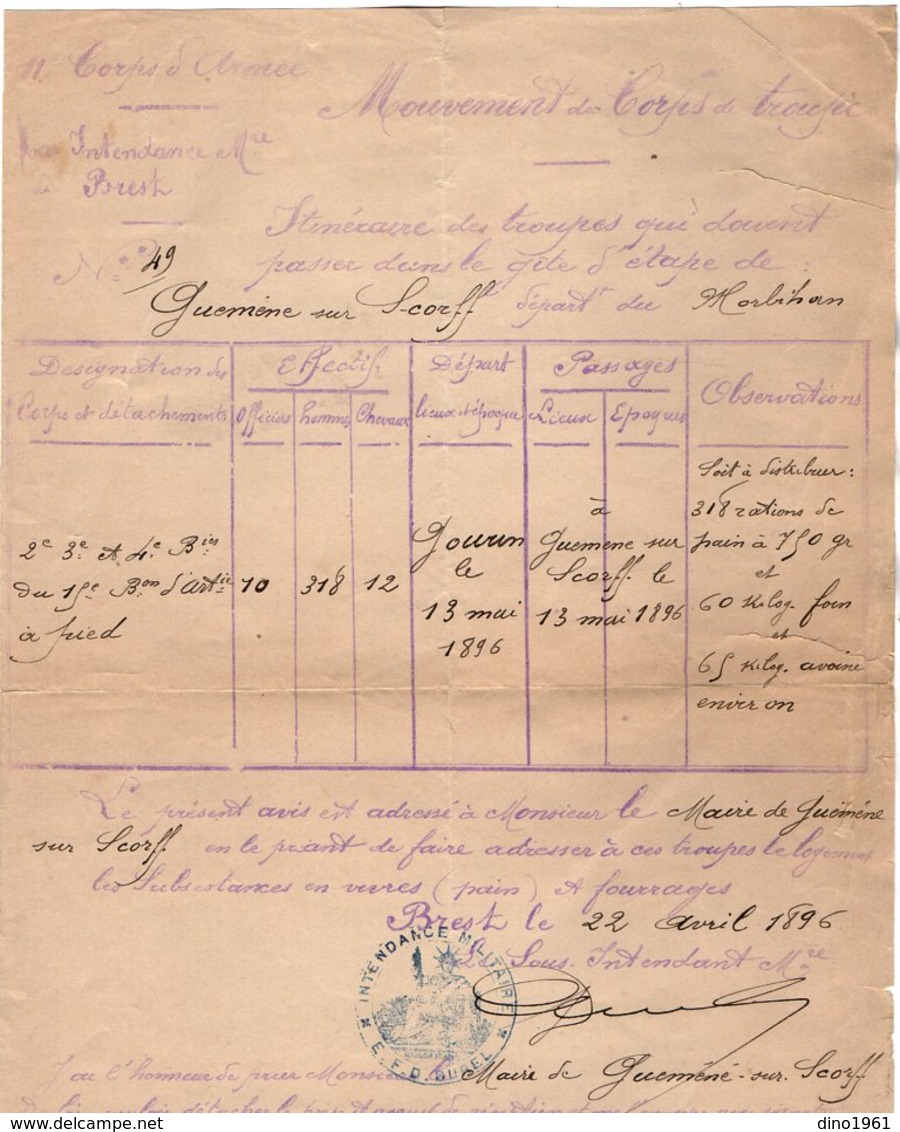 11. Corps d'Armée
Mouvement de Corps de troupe
Intendance Mre
de Brest
N° 49
Itinéraire des troupes qui doivent
passer dans le gîte d'étape de :
Guémené sur Scorff départt du Morbihan
Désignation des
Corps et détachements
Effectif
Officiers
hommes
Chevaux
Départ
lieux et époque
Passages
Lieux
Epoques
Observations
2e 3e et 4e Bies
du 15e Bon d'Artie
à pied
10
318
12
Gourin
le
13 mai
1896
à
Guemene sur
Scorff. le
13 mai 1896
Soit à distribuer :
318 rations de
pain à 750 gr
et
60 Kilog. foin
et
65 Kilog. avoine
environ
Le présent avis est adressé à Monsieur le Maire de Guémené
sur Scorff en le priant de faire adresser à ces troupes le logement
les Subsistances en vivres (pain) et fourrages
Brest le 22 avril 1896
Le Sous. Intendant Mre
INTENDANCE MILITAIRE
J'ai l'honneur de prier Monsieur Maire de Guémené-sur-Scorff
dino1961